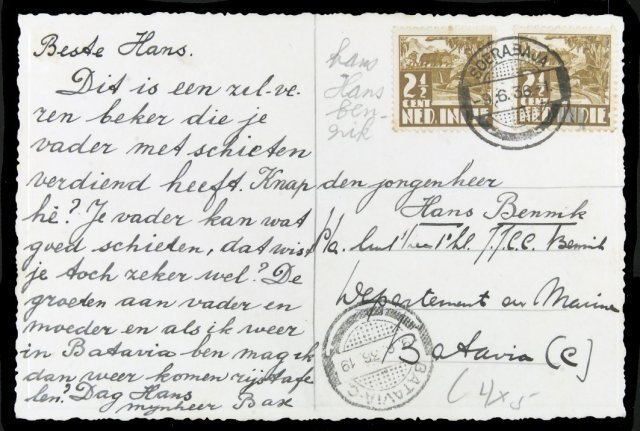 Beste Hans.
Dit is een zil-ve-
ren beker die je
vader met schieten
verdiend heeft. Knap
hè? Je vader kan wat
goed schieten, dat wist
je toch zeker wel? De
groeten aan vader en
moeder en als ik weer
in Batavia ben mag ik
dan weer komen rijstafe
len? Dag Hans
mijnheer Bax
hans
Hans
ben-
nik
2½ CENT NED. INDIE
2½ CENT NED. INDIE
SOERABAJA
.6.36.
den jongenheer
Hans Bennik
p/a. Bennik
Departement der Marine
Batavia (C)
BATAVIA-C
36.19
(4x5